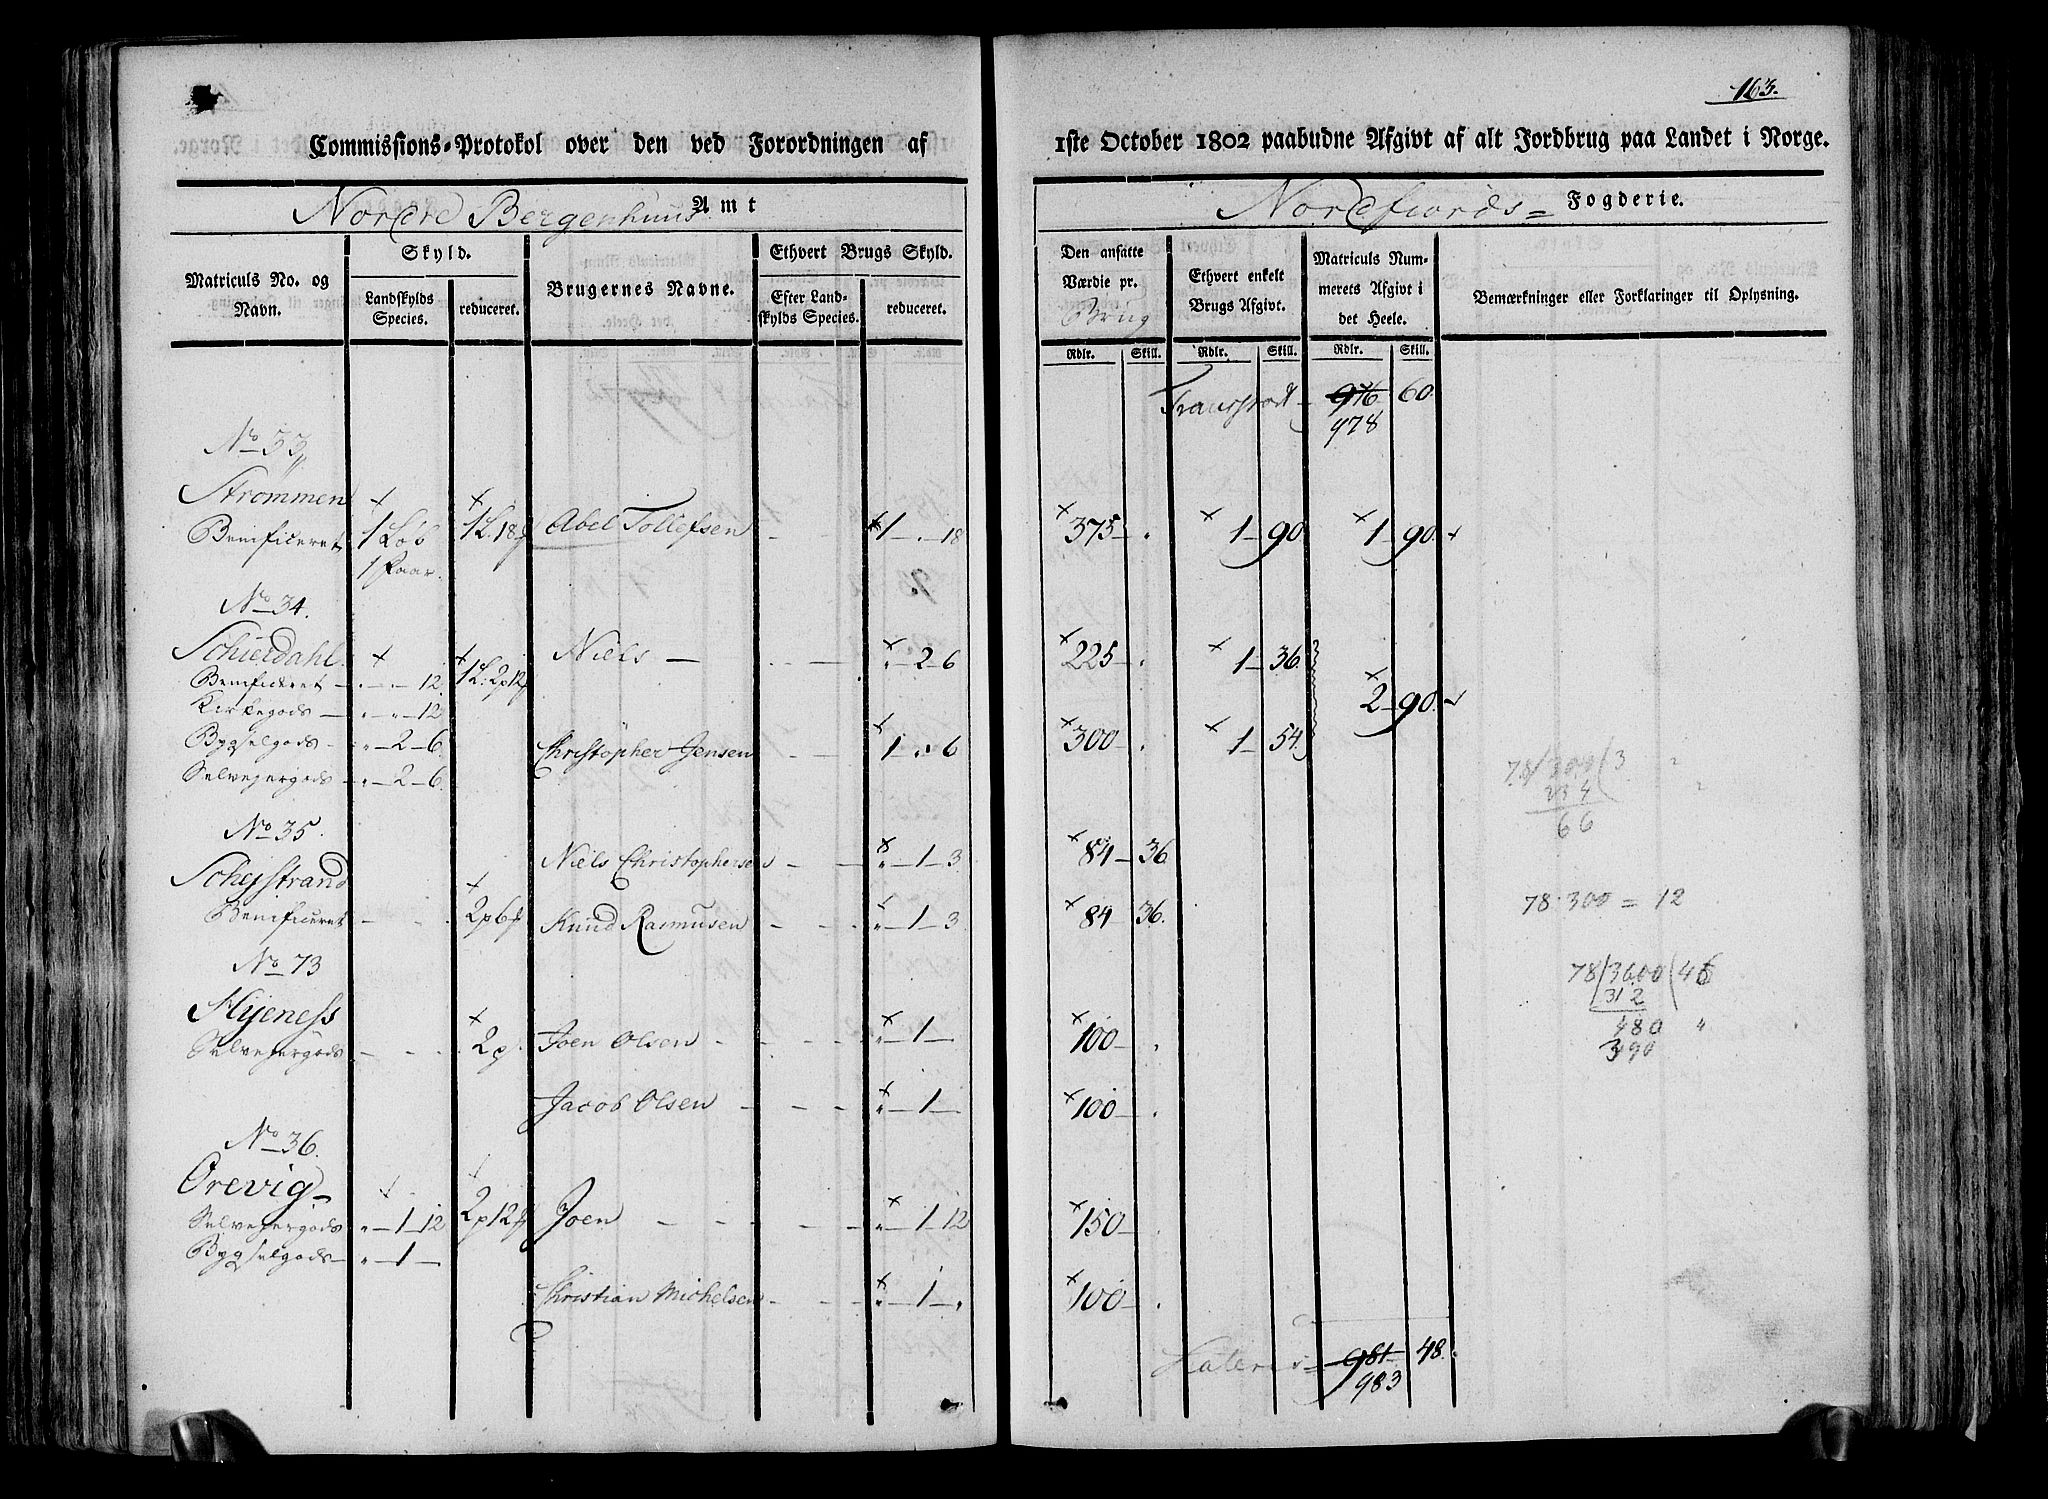 163.
Commissions-Protokol over den ved Forordningen af 1ste October 1802 paabudne Afgivt af alt Jordbrug paa Landet i Norge.
Nordre Bergenhuus Amt
Nordfiords= Fogderie.
Matriculs No. og Navn.
Skyld.
Landskylds Species.
reduceret.
Brugernes Navne.
Ethvert Brugs Skyld.
Efter Landskylds Species.
reduceret.
Den ansatte Værdie pr. Brug
Ethvert enkelt Brugs Afgivt.
Matriculs Nummerets Afgivt i det Heele.
Bemærkninger eller Forklaringer til Oplysning.
Rdlr. Skill. Rdlr. Skill. Rdlr. Skill.
Transport 976 60.
978
No 53
Strømmen
Benificeret 1 Løb 1L. 18 Abel Tollefsen 1 - . - 18 375 - . 1 - 90 1 - 90.
1 Faar.
No 34.
Schierdahl 1L: 2p 12 Niels - " - 2 - 6 225 - . 1 - 36.
Benificeret - . - . - 12.
Kirkegods - " - " - 12 2 - 90.
Bygselgods - " - 2 - 6. Christopher Jensen 1 - . 6 300 - . 1 - 54.
Selveyergods - " - 2 - 6.
78/300/3
234
66
No 35.
Niels Christophersen " - 1 - 3 84 - 36.
Schejstrand
Benificeret 2p 6 Knud Rasmusen " - 1 - 3 84 - 36.
78:300 = 12
No 73
78/3600/46
312
480
Hyeness
Selveyergods 2p. Joen Olsen " - 1 - 100 - .
Jacob Olsen " - 1 - 100 - .
No 36.
Orevig
Selveyergods " - 1 - 12 2p 12 Joen " - 1 - 12 150 - .
Bygselgods - " - 1 -
Christian Michelsen " - 1 - . 100 - .
Lateris = 981 48.
983